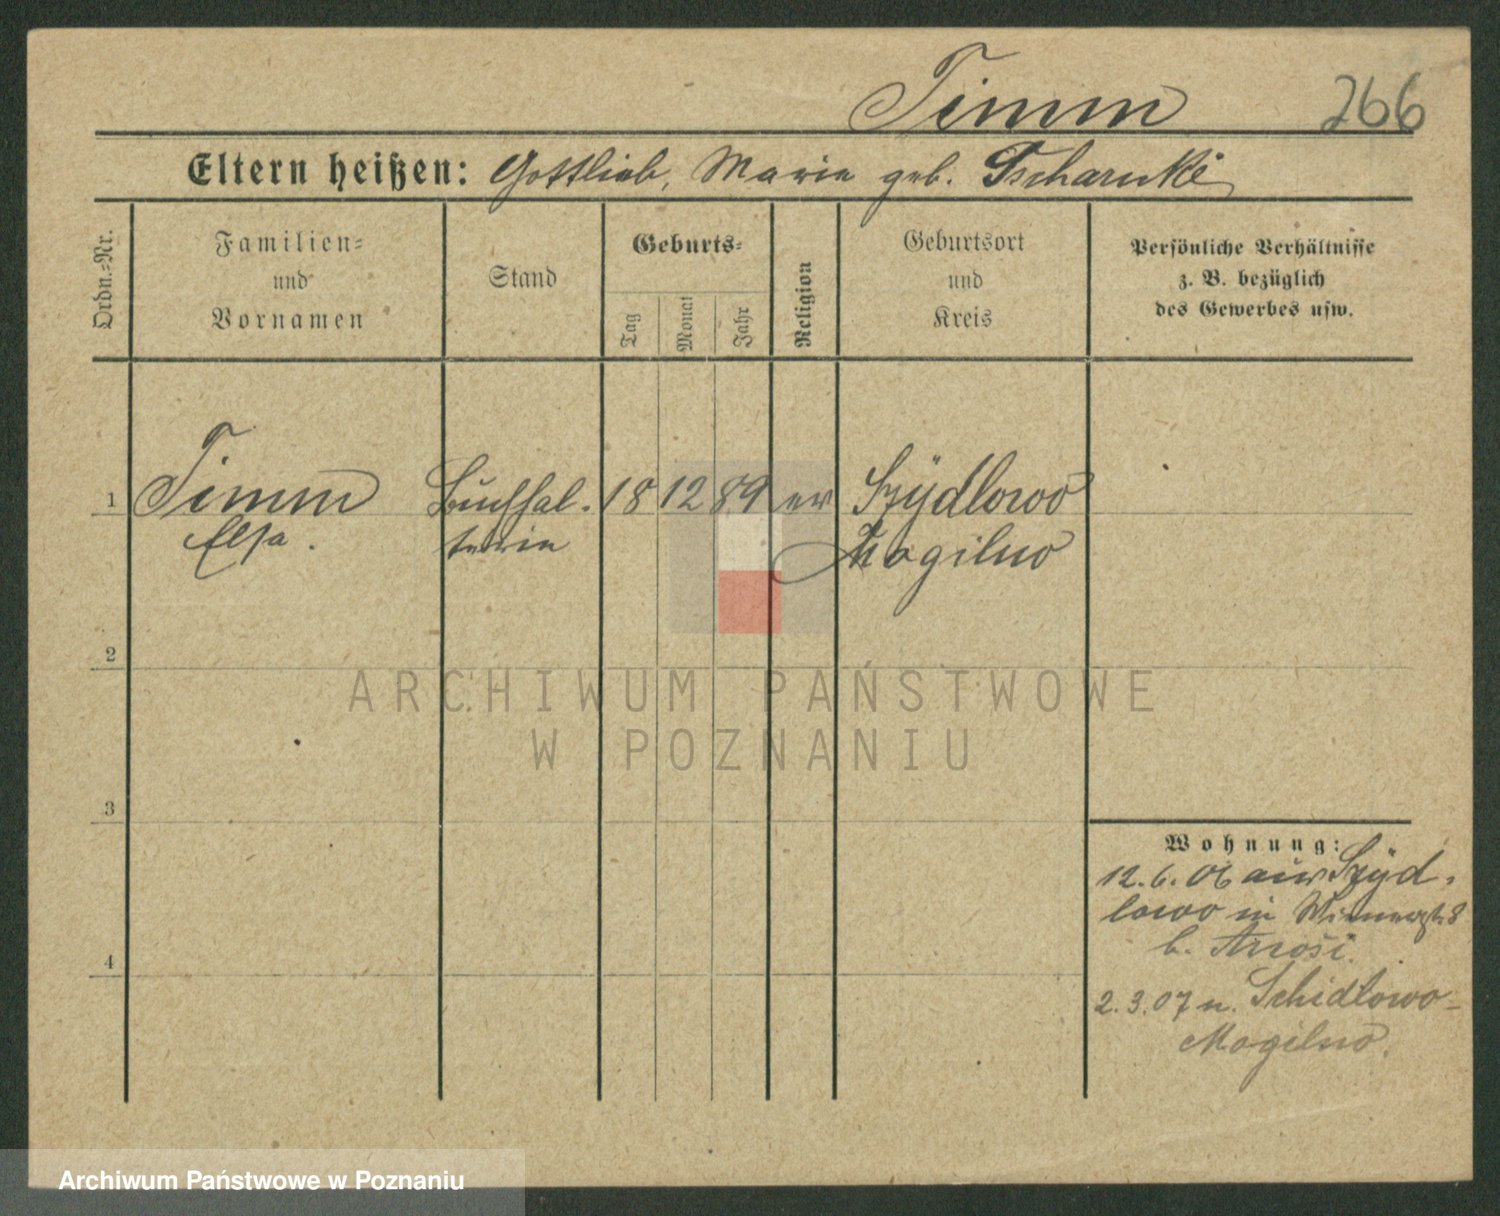 Timm 266
Eltern heißen: Gottlieb, Marie geb. Tscharnke
Ordn.=Nr.
Familien=
und
Vornamen
Stand
Geburts=
Tag
Monat
Jahr
Religion
Geburtsort
und
Kreis
Persönliche Verhältnisse
z. B. bezüglich
des Gewerbes usw.
1 Timm Buchhal- 18 12 89 ev Szydlowo
Elsa. terin Mogilno
2
ARCHIWUM PAŃSTWOWE
W POZNANIU
3
Wohnung:
12.6.06 aus Szyd-
lowo in 8
b.
4
2.3.07 n. Schidlowo-
Mogilno.
Archiwum Państwowe w Poznaniu